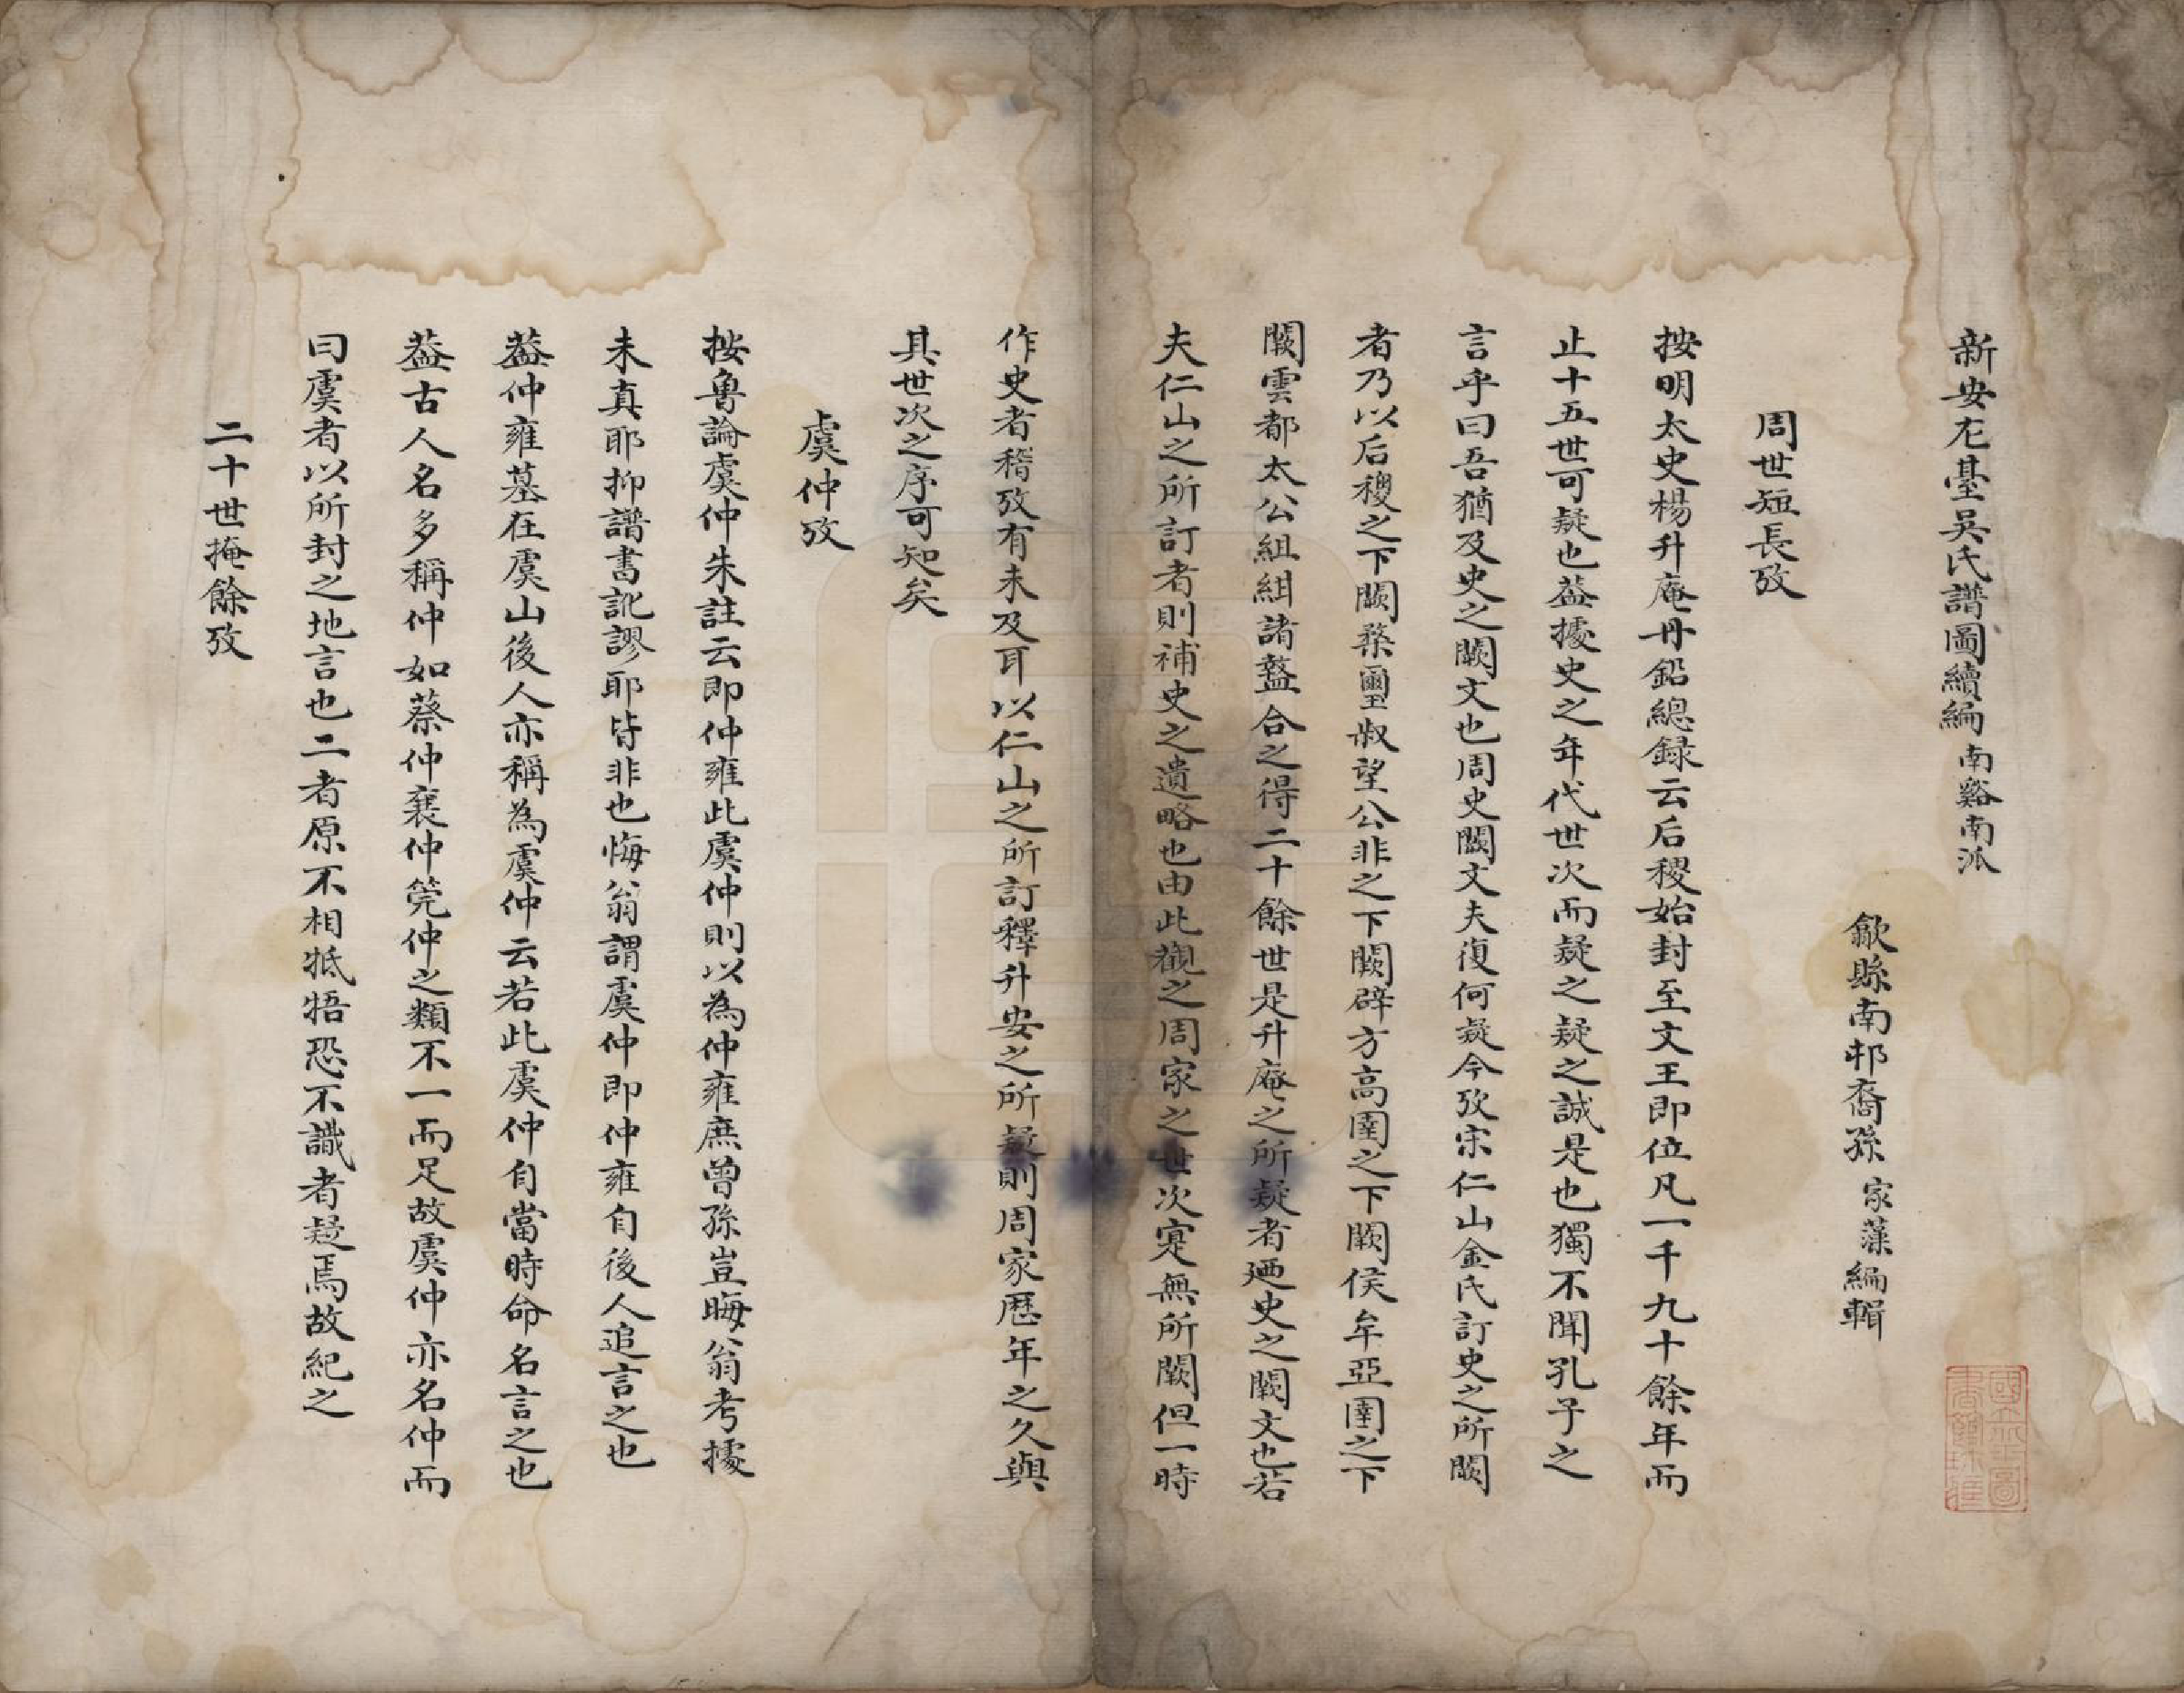 新安左臺吳氏譜圖續編南谿南派
歙縣南邨裔孫家藻編輯
周世短長攷
按明太史楊升庵丹鉛總録云后稷始封至文王即位凡一千九十餘年而
止十五世可疑也葢據史之年代世次而疑之疑之誠是也獨不聞孔子之
言乎曰吾猶及史之闕文也周史闕文夫復何疑今攷宋仁山金氏訂史之所闕
者乃以后稷之下闕漦璽叔望公非之下闕辟方高圉之下闕侯牟亞圉之下
闕雲都太公組紺諸盩合之得二十餘世是升庵之所疑者廼史之闕文也若
夫仁山之所訂者則補史之遺略也由此觀之周家之世次寔無所闕但一時
作史者稽攷有未及耳以仁山之所訂釋升安之所疑則周家歷年之久與
其世次之序可知矣
虞仲攷
按魯論虞仲朱註云即仲雍此虞仲則以為仲雍庶曾孫豈晦翁考據
未真耶抑譜書訛謬耶皆非也悔翁謂虞仲即仲雍自後人追言之也
葢仲雍墓在虞山後人亦稱為虞仲云若此虞仲自當時命名言之也
葢古人名多稱仲如蔡仲襄仲筦仲之類不一而足故虞仲亦名仲而
曰虞者以所封之地言也二者原不相牴牾恐不識者疑焉故紀之
二十世掩餘攷